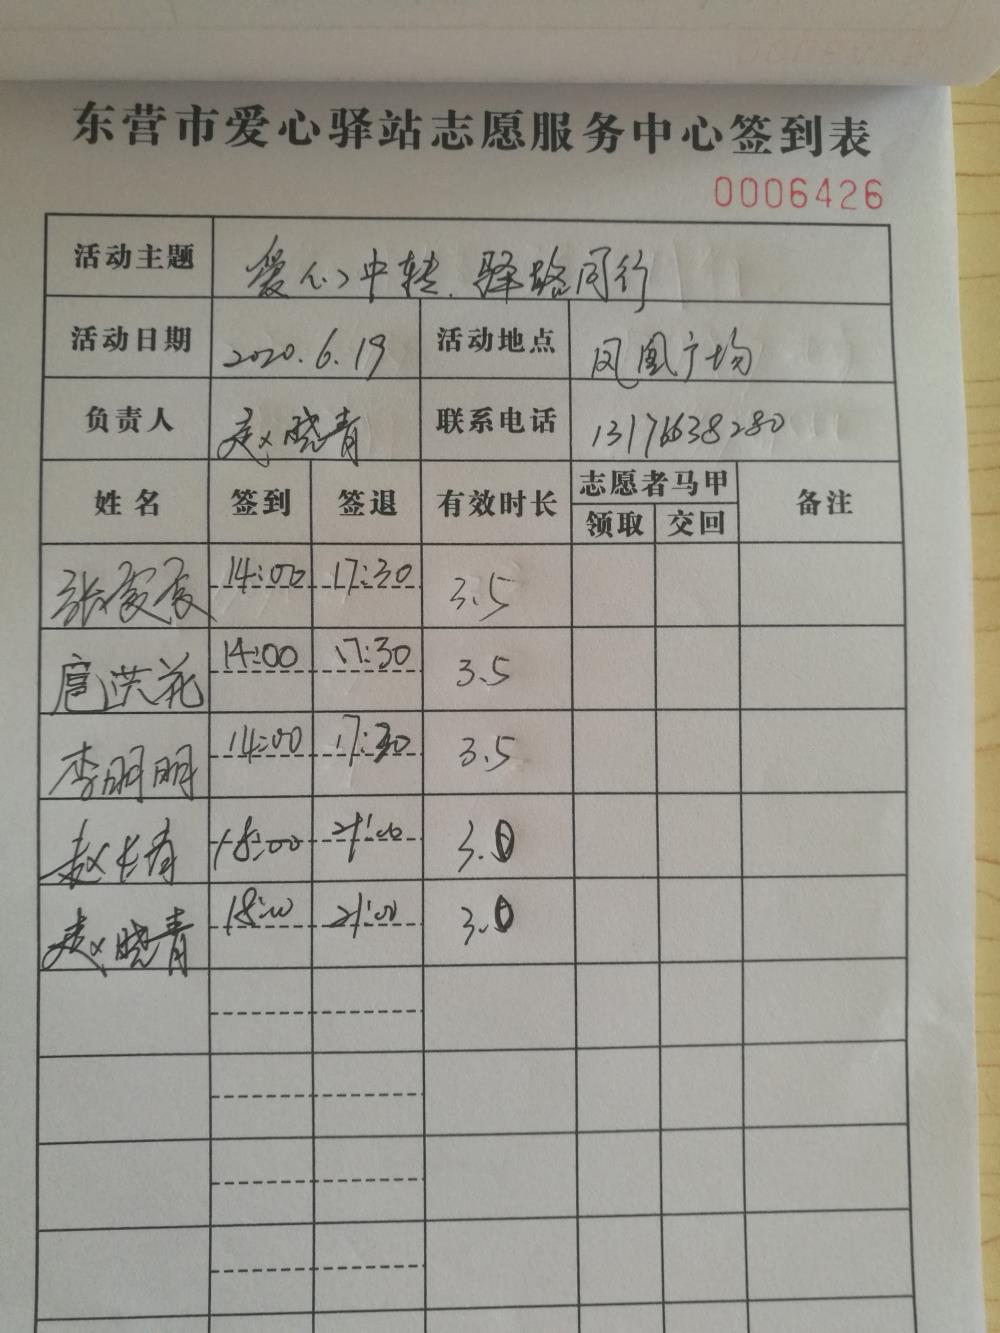 东营市爱心驿站志愿服务中心签到表
0006426
活动主题 爱心中转、驿路同行
活动日期 2020.6.19 活动地点 凤凰广场
负责人 赵晓青 联系电话 13176638280
姓名 签到 签退 有效时长 志愿者马甲 备注
领取 交回
张 14:00 17:30 3.5
扈洪花 14:00 17:30 3.5
李明明 14:00 17:30 3.5
赵长有 18:00 21:00 3.0
赵晓青 18:00 21:00 3.0